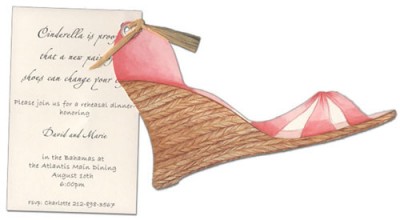 Cinderella is proof
that a new pair
shoes can change your
Please join us for a rehearsal dinner
honoring
David and Marie
in the Bahamas at
the Atlantic Main Dining
August 10th
6:00pm
rsvp: Charlotte 212-898-3567